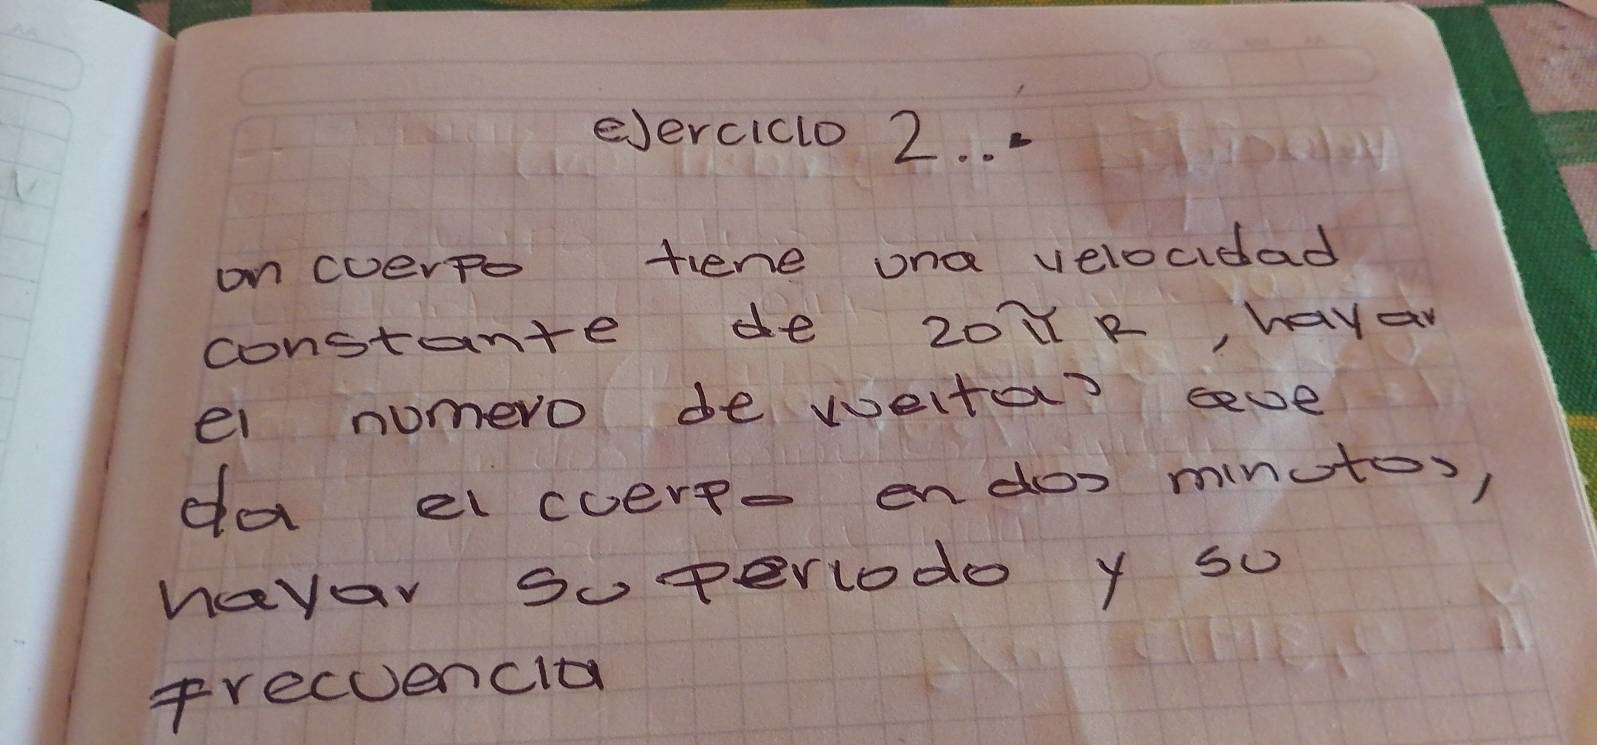 ejercicio 2...
un cuerpo tiene una velocidad
constante de 20 π R, hayar
el numero de vueltas que
da el cuerpo en dos minutos,
hayar su periodo y su
frecuencia